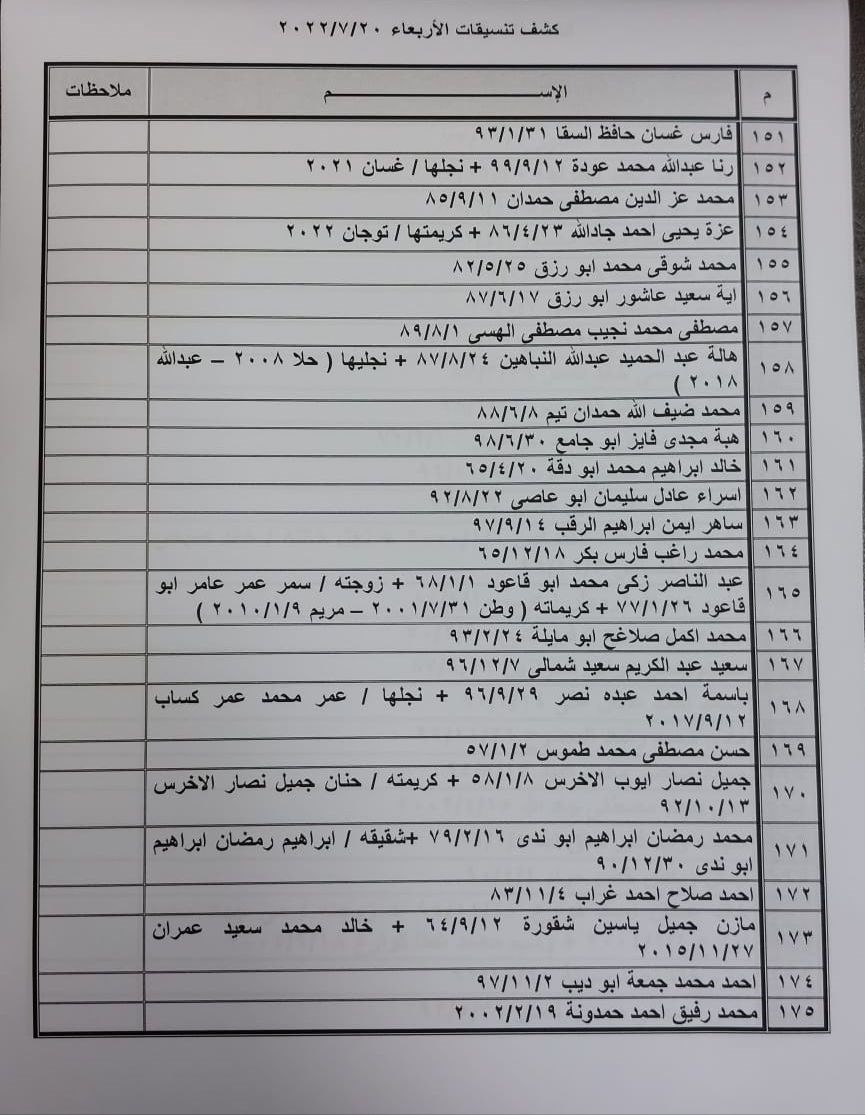 كشف تنسيقات الأربعاء ٢٠٢٢/٧/٢٠
م الإســـــــــــــم ملاحظات
١٥١ فارس غسان حافظ السقا ٩٣/١/٣١
١٥٢ رنا عبدالله محمد عودة ٩٩/٩/١٢ + نجلها / غسان ٢٠٢١
١٥٣ محمد عز الدين مصطفى حمدان ٨٥/٩/١١
١٥٤ عزة يحيى احمد جادالله ٨٦/٤/٢٣ + كريمتها / توجان ٢٠٢٢
١٥٥ محمد شوقى محمد ابو رزق ٨٢/٥/٢٥
١٥٦ اية سعيد عاشور ابو رزق ٨٧/٦/١٧
١٥٧ مصطفى محمد نجيب مصطفى الهسى ٨٩/٨/١
١٥٨ هالة عبد الحميد عبدالله النباهين ٨٧/٨/٢٤ + نجليها ( حلا ٢٠٠٨ – عبدالله
٢٠١٨ )
١٥٩ محمد ضيف الله حمدان تيم ٨٨/٦/٨
١٦٠ هبة مجدى فايز ابو جامع ٩٨/٦/٣٠
١٦١ خالد ابراهيم محمد ابو دقة ٦٥/٤/٢٠
١٦٢ اسراء عادل سليمان ابو عاصى ٩٢/٨/٢٢
١٦٣ ساهر ايمن ابراهيم الرقب ٩٧/٩/١٤
١٦٤ محمد راغب فارس بكر ٦٥/١٢/١٨
١٦٥ عبد الناصر زكى محمد ابو قاعود ٦٨/١/١ + زوجته / سمر عمر عامر ابو
قاعود ٧٧/١/٢٦ + كريماته ( وطن ٢٠٠١/٧/٣١ – مريم ٢٠١٠/١/٩ )
١٦٦ محمد اكمل صلاغح ابو مايلة ٩٣/٢/٢٤
١٦٧ سعيد عبد الكريم سعيد شمالى ٩٦/١٢/٧
١٦٨ باسمة احمد عبده نصر ٩٦/٩/٢٩ + نجلها / عمر محمد عمر كساب
٢٠١٧/٩/١٢
١٦٩ حسن مصطفى محمد طموس ٥٧/١/٢
١٧٠ جميل نصار ايوب الاخرس ٥٨/١/٨ + كريمته / حنان جميل نصار الاخرس
٩٢/١٠/١٣
١٧١ محمد رمضان ابراهيم ابو ندى ٧٩/٢/١٦ +شقيقه / ابراهيم رمضان ابراهيم
ابو ندى ٩٠/١٢/٣٠
١٧٢ احمد صلاح احمد غراب ٨٣/١١/٤
١٧٣ مازن جميل ياسين شقورة ٦٤/٩/١٢ + خالد محمد سعيد عمران
٢٠١٥/١١/٢٧
١٧٤ احمد محمد جمعة ابو ديب ٩٧/١١/٢
١٧٥ محمد رفيق احمد حمدونة ٢٠٠٢/٢/١٩